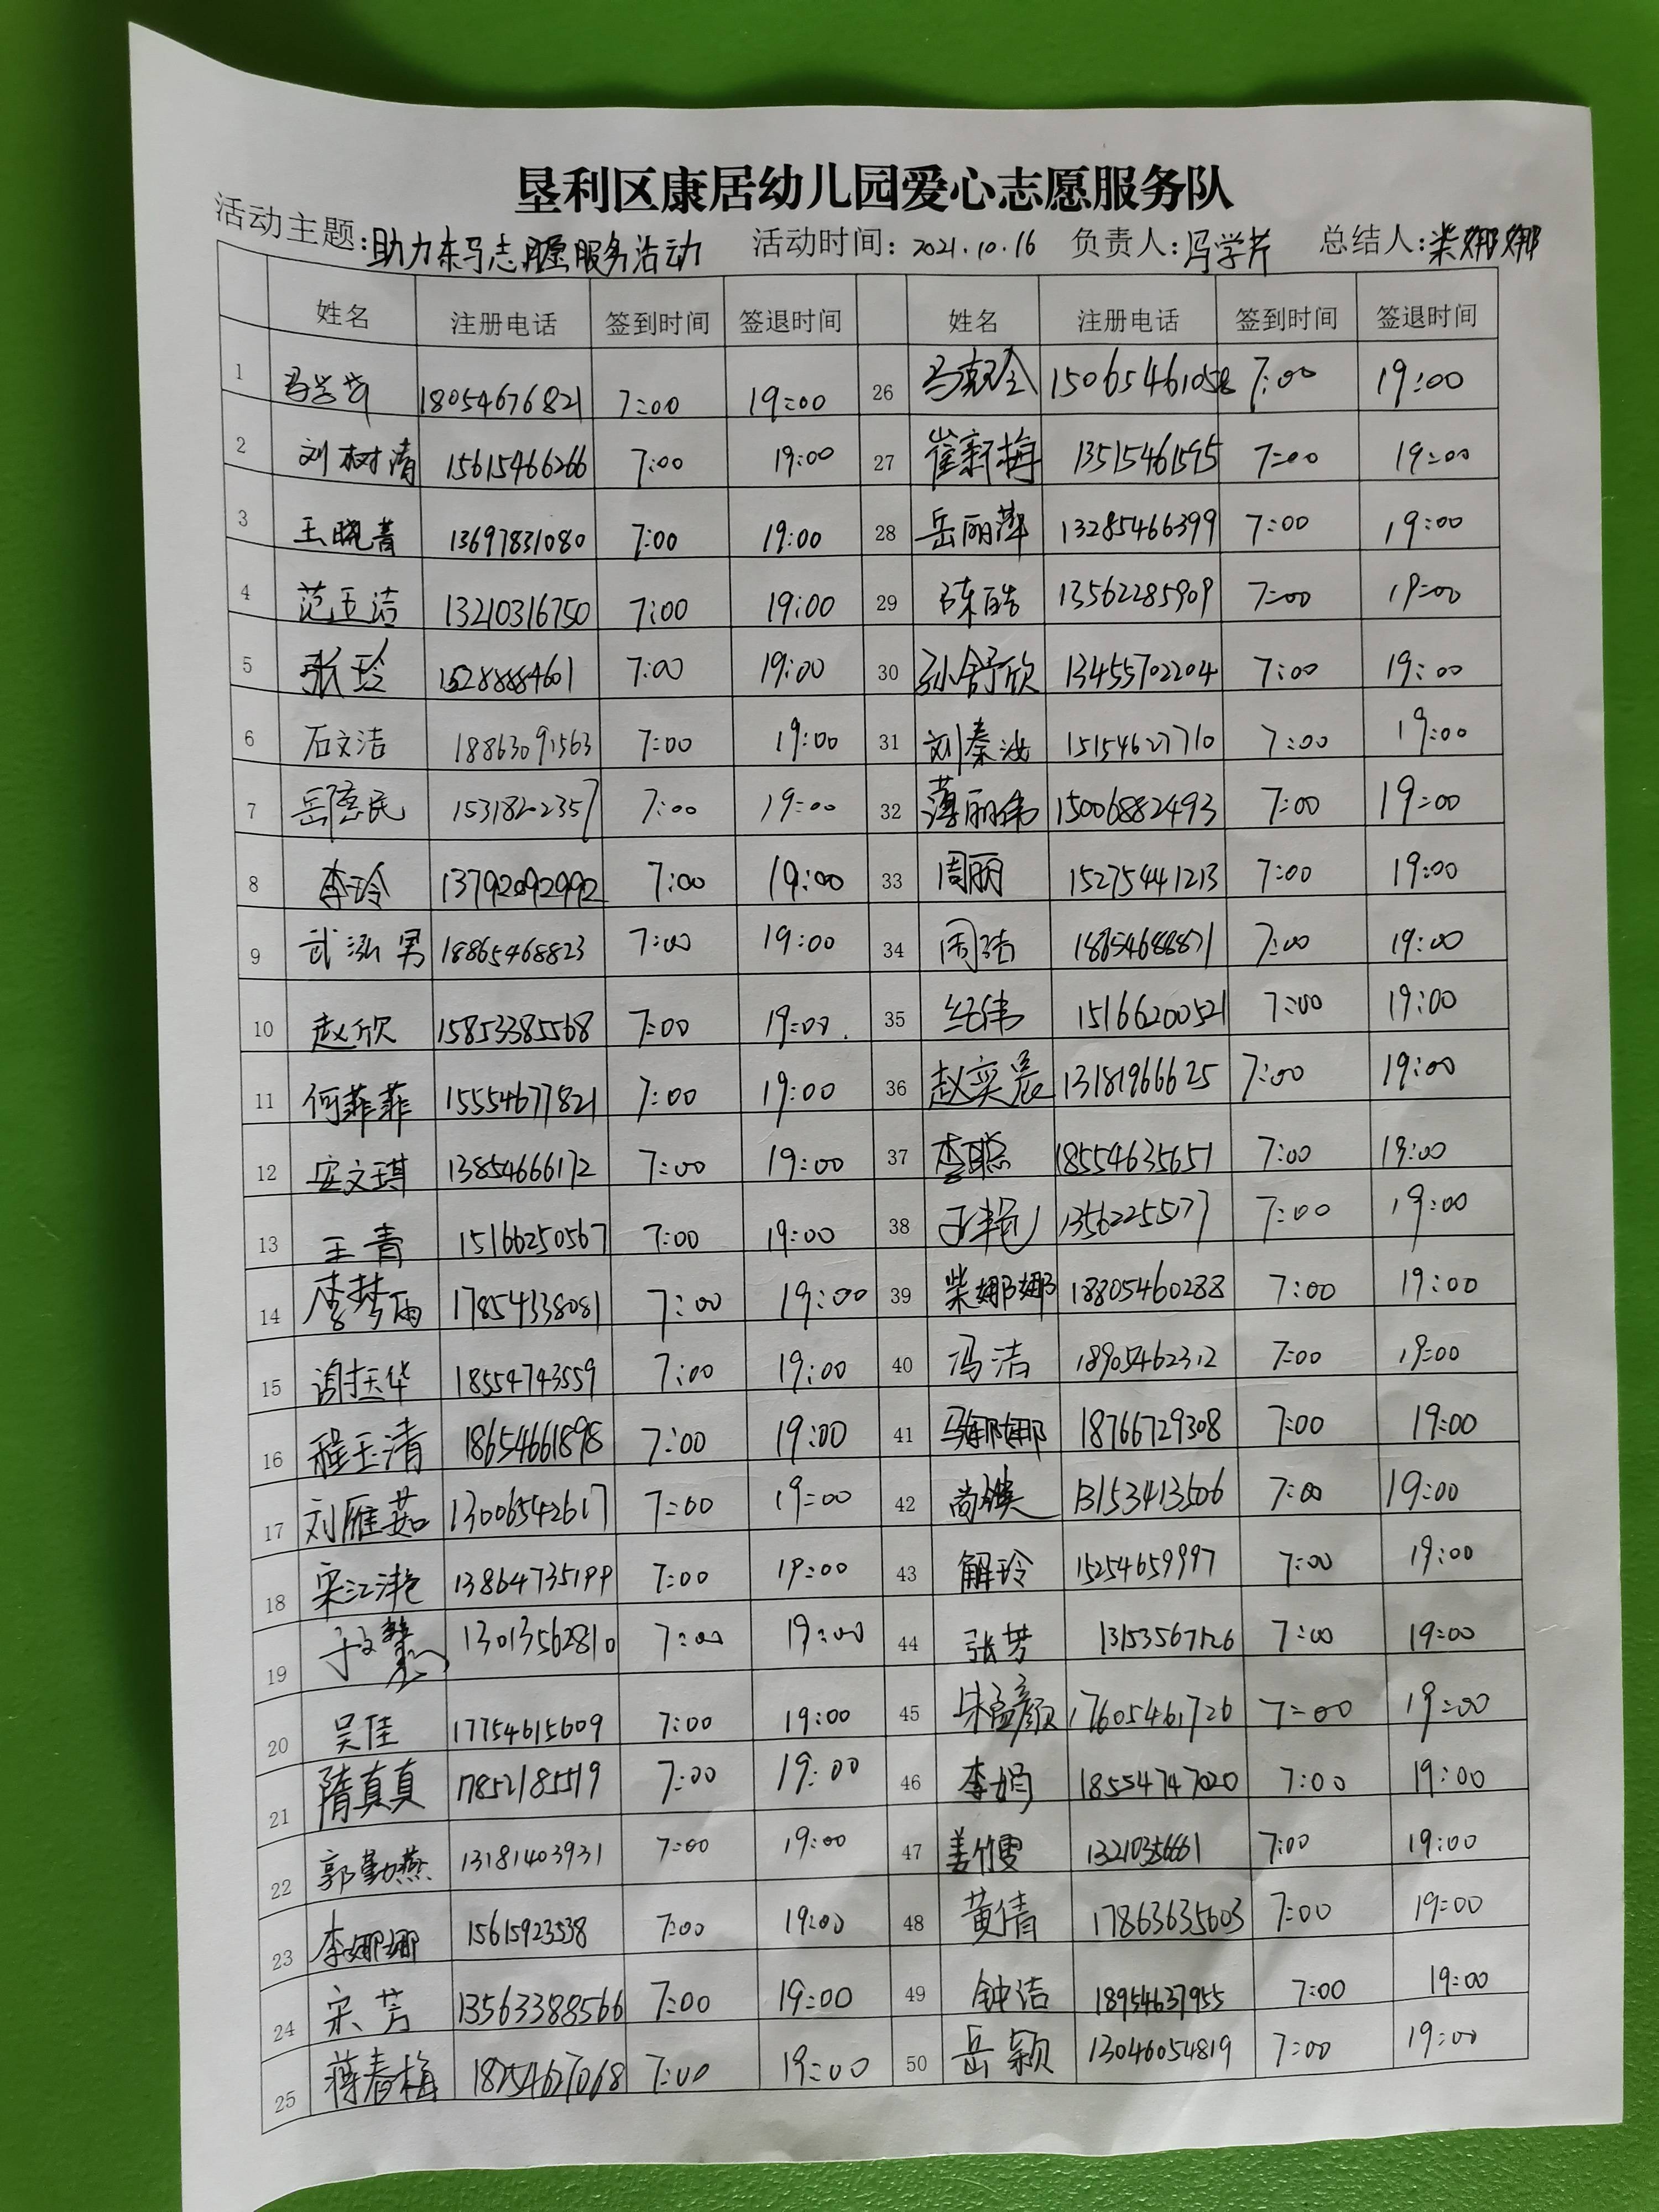 垦利区康居幼儿园爱心志愿服务队
活动主题:助力东马志愿服务活动 活动时间:2021.10.16 负责人:冯学芹 总结人:柴娜娜
姓名 注册电话 签到时间 签退时间 姓名 注册电话 签到时间 签退时间
1 18054676821 7:00 19:00 26 15065461058 7:00 19:00
2 刘树清 15615466266 7:00 19:00 27 崔新梅 13515461595 7:00 19:00
3 王晓青 13697831080 7:00 19:00 28 岳丽萍 13285466399 7:00 19:00
4 范玉洁 13210316750 7:00 19:00 29 陈皓 13562285909 7:00 19:00
5 张玲 15288884601 7:00 19:00 30 孙舒欣 13455702204 7:00 19:00
6 石文洁 18863091563 7:00 19:00 31 刘秦汝 15154627710 7:00 19:00
7 岳慈民 15318202357 7:00 19:00 32 薄丽伟 15006882493 7:00 19:00
8 李玲 13792092992 7:00 19:00 33 周丽 15275441213 7:00 19:00
9 武泓男 18865468823 7:00 19:00 34 周洁 18654688871 7:00 19:00
10 赵欣 15853385568 7:00 19:00. 35 纪伟 15166200521 7:00 19:00
11 何菲菲 15554677821 7:00 19:00 36 赵奕晨 13181966625 7:00 19:00
12 安文琪 13854666172 7:00 19:00 37 李聪 18554635651 7:00 19:00
13 王青 15166250567 7:00 19:00 38 13562255077 7:00 19:00
14 李梦雨 17854138081 7:00 19:00 39 柴娜娜 18805460288 7:00 19:00
15 谢玉华 18554743559 7:00 19:00 40 冯洁 18905462312 7:00 19:00
16 程玉清 18654661898 7:00 19:00 41 马娜娜 18766729308 7:00 19:00
17 刘雁茹 13006542617 7:00 19:00 42 尚瑛 13153413506 7:00 19:00
18 宋江滟 13864735199 7:00 19:00 43 解玲 15254659997 7:00 19:00
19 于文慧 13013562810 7:00 19:00 44 张芳 13153567126 7:00 19:00
20 吴佳 17754615609 7:00 19:00 45 朱孟颜 17605461726 7:00 19:00
21 隋真真 17852185519 7:00 19:00 46 李娟 18554747020 7:00 19:00
22 郭勤燕 13181403931 7:00 19:00 47 姜竹雯 13210356661 7:00 19:00
23 李娜娜 15615923538 7:00 19:00 48 黄倩 17863635603 7:00 19:00
24 宋芳 13563388566 7:00 19:00 49 钟洁 18954637955 7:00 19:00
25 蒋春梅 18254627068 7:00 19:00 50 岳颖 13046054819 7:00 19:00